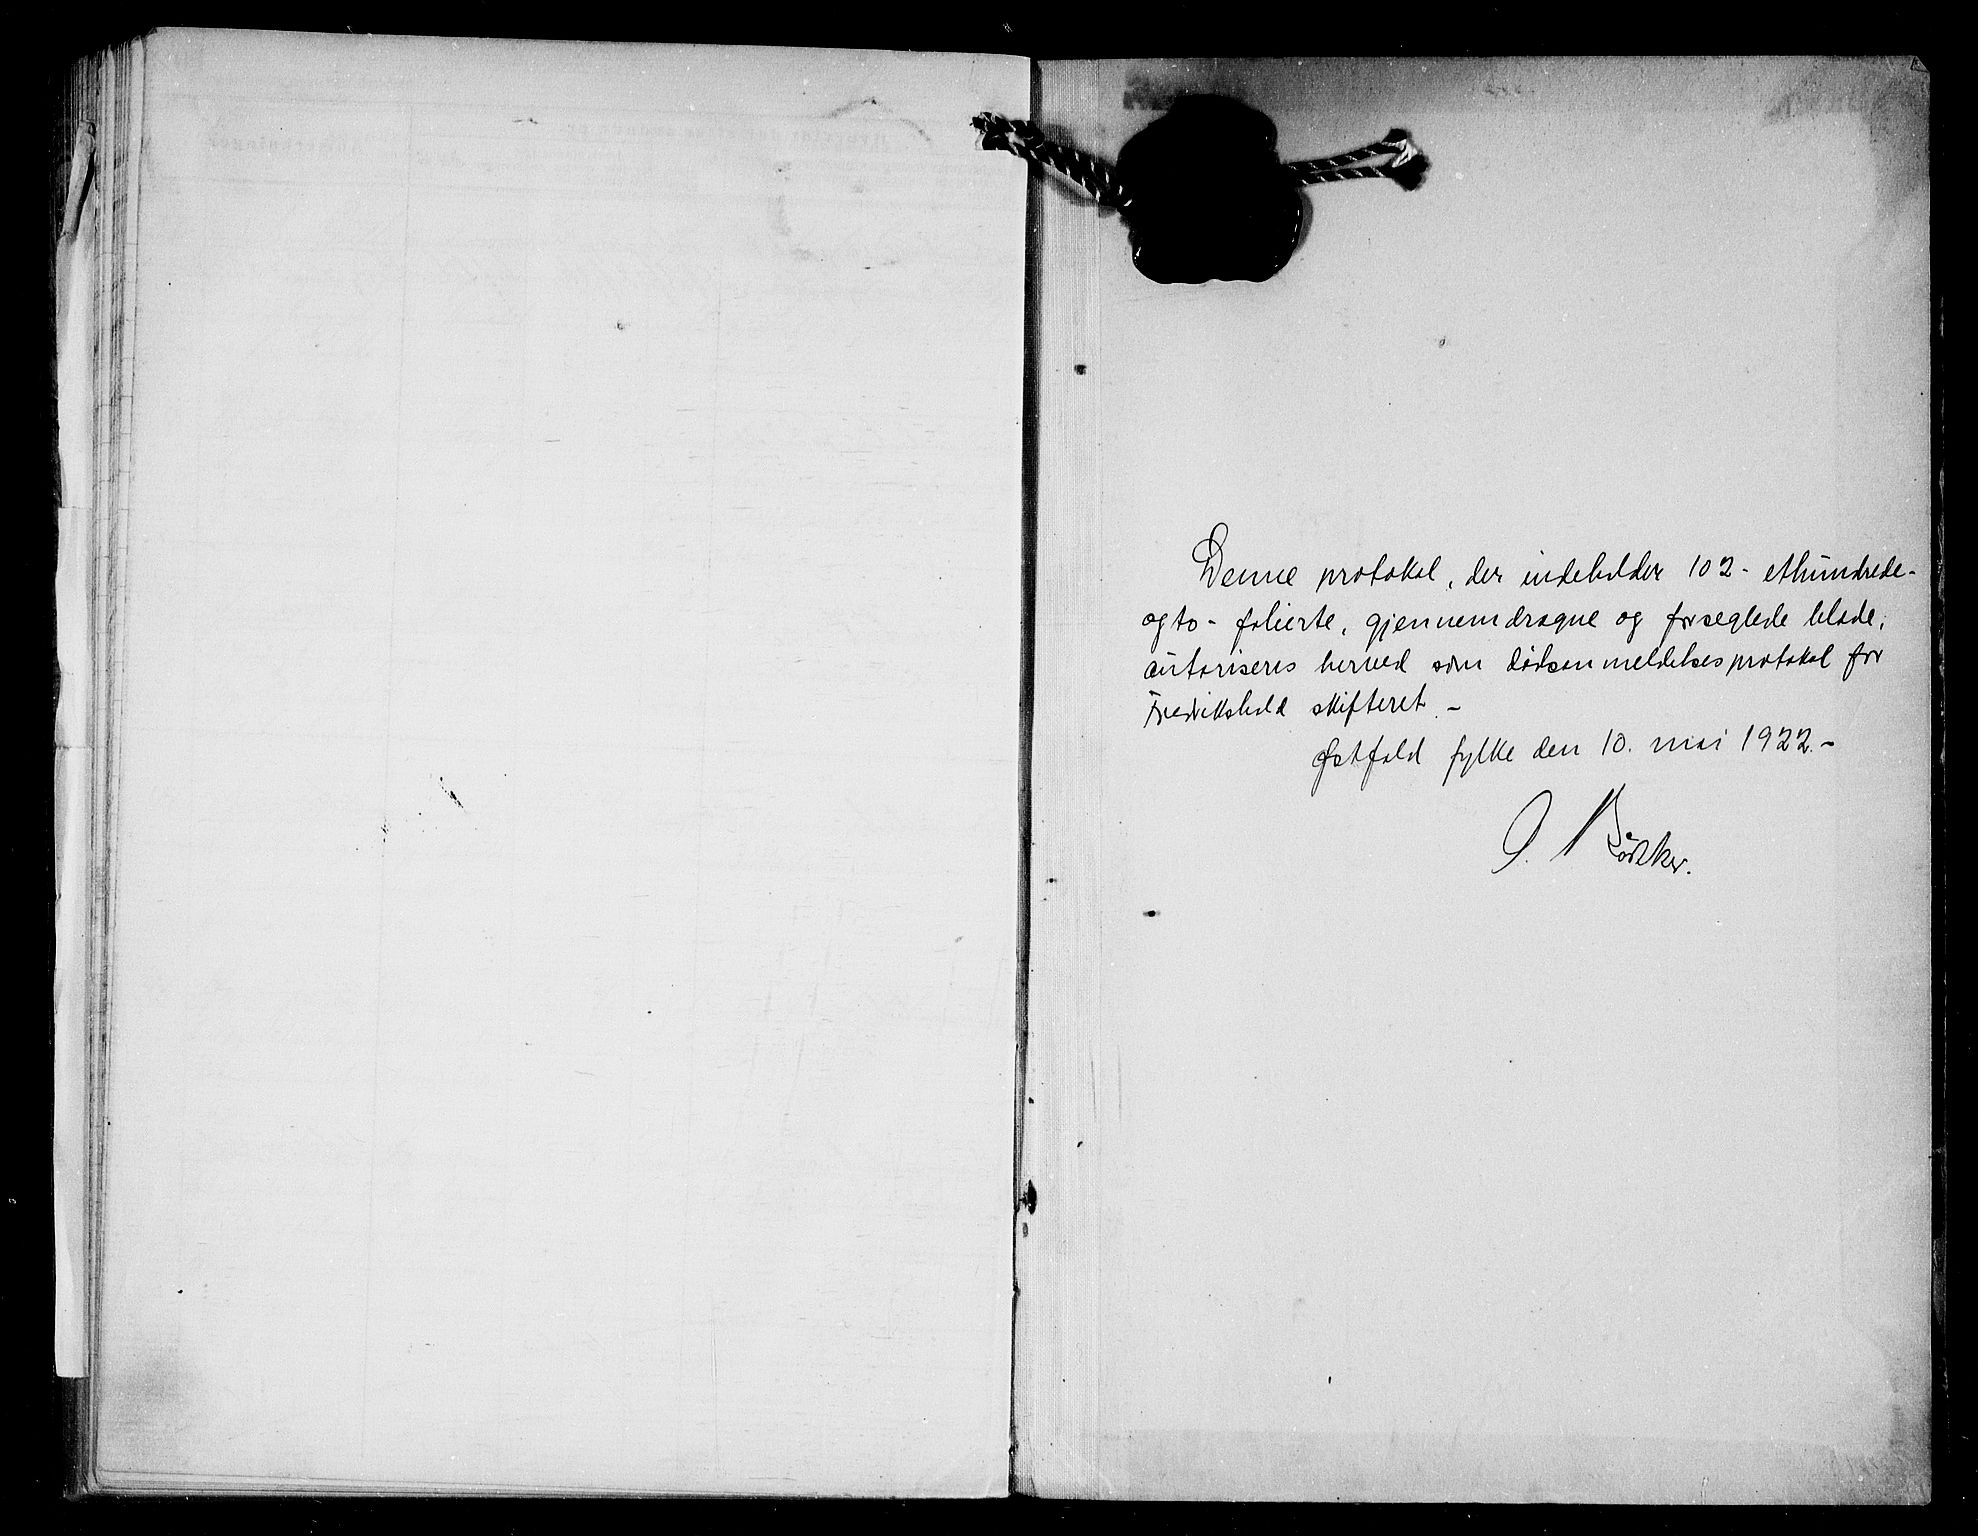 Denne protokol, der indeholder 102 - ethundrede-
ogto - folierte, gjennemdragne og forseglede blade,
autoriseres herved som dødsanmeldelsesprotokol for
Fredrikshald skifteret. -
Østfold fylke den 10. mai 1922. -